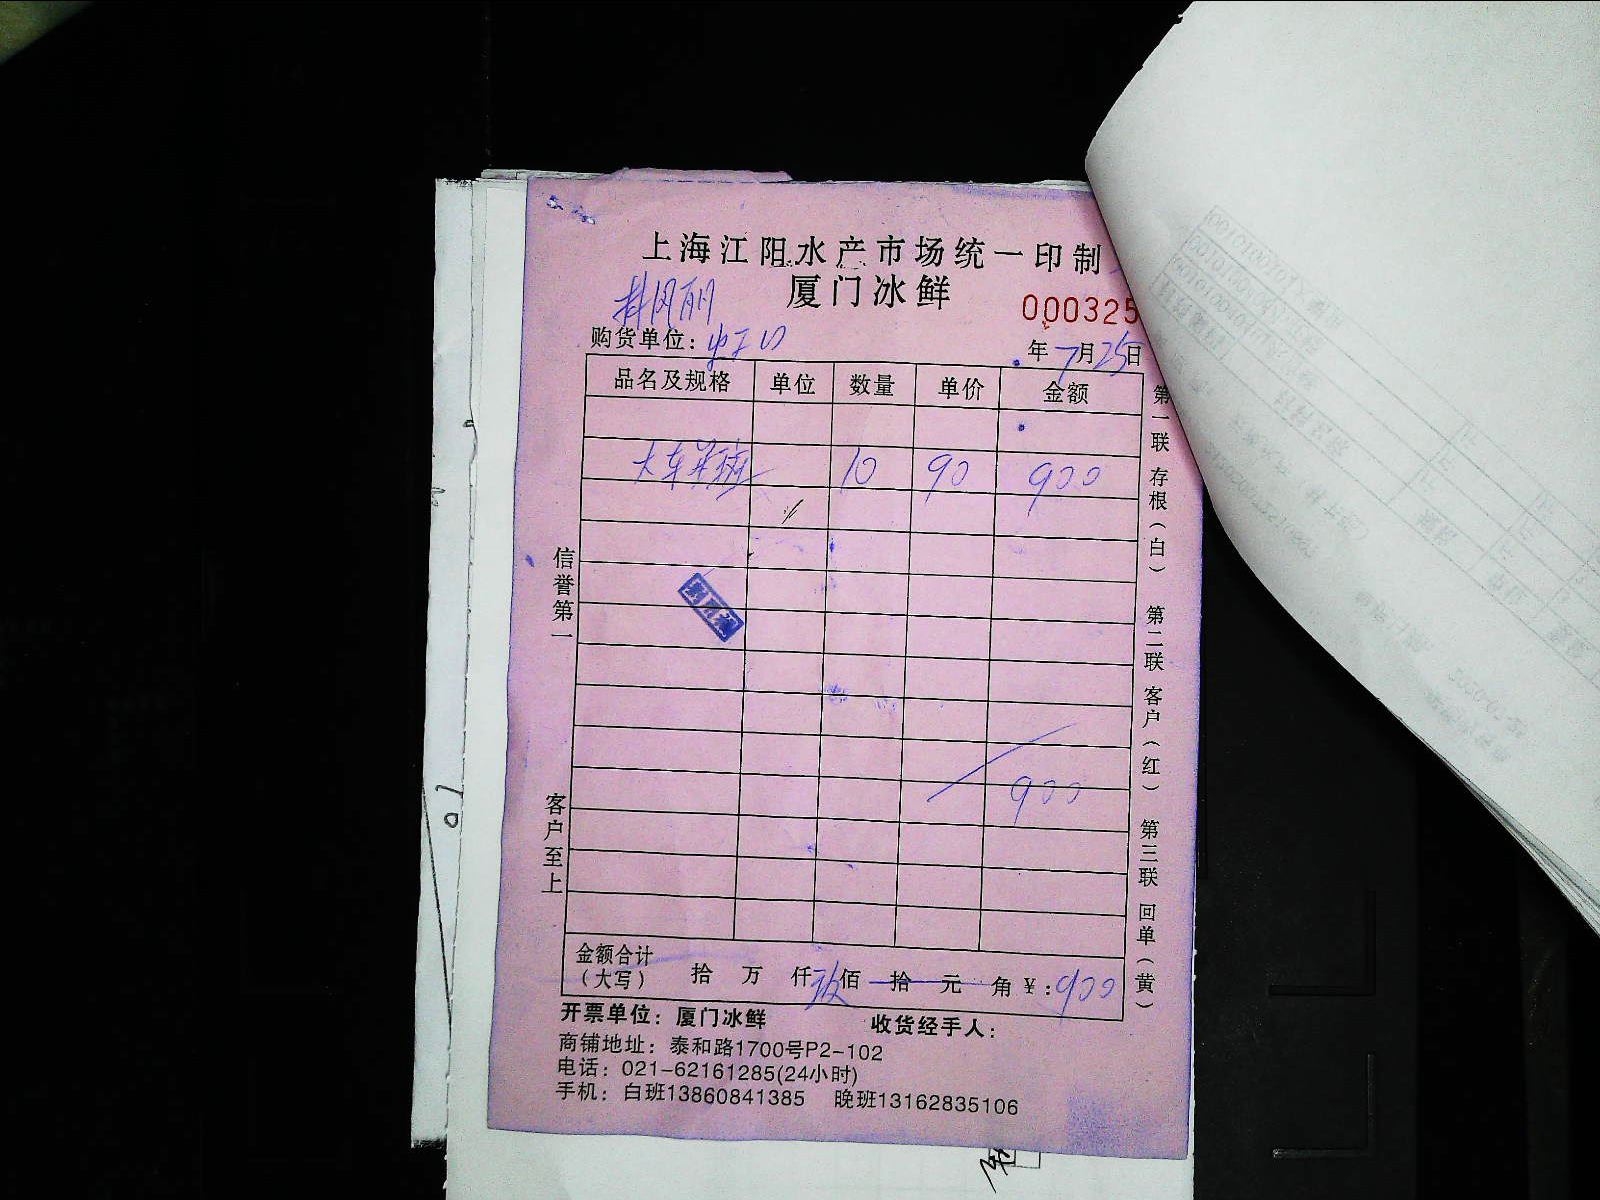 上海江阳水产市场统一印制
厦门冰鲜
000325
购货单位：虹口
年7月25日
品名及规格 单位 数量 单价 金额
大车 10 90 900
900
金额合计（大写） 拾 万 仟 玖佰 拾 元 角 ￥：900
开票单位：厦门冰鲜 收货经手人：
商铺地址：泰和路1700号P2-102
电话：021-62161285(24小时)
手机：白班13860841385 晚班13162835106
信誉第一 客户至上
第一联存根（白） 第二联客户（红） 第三联回单（黄）